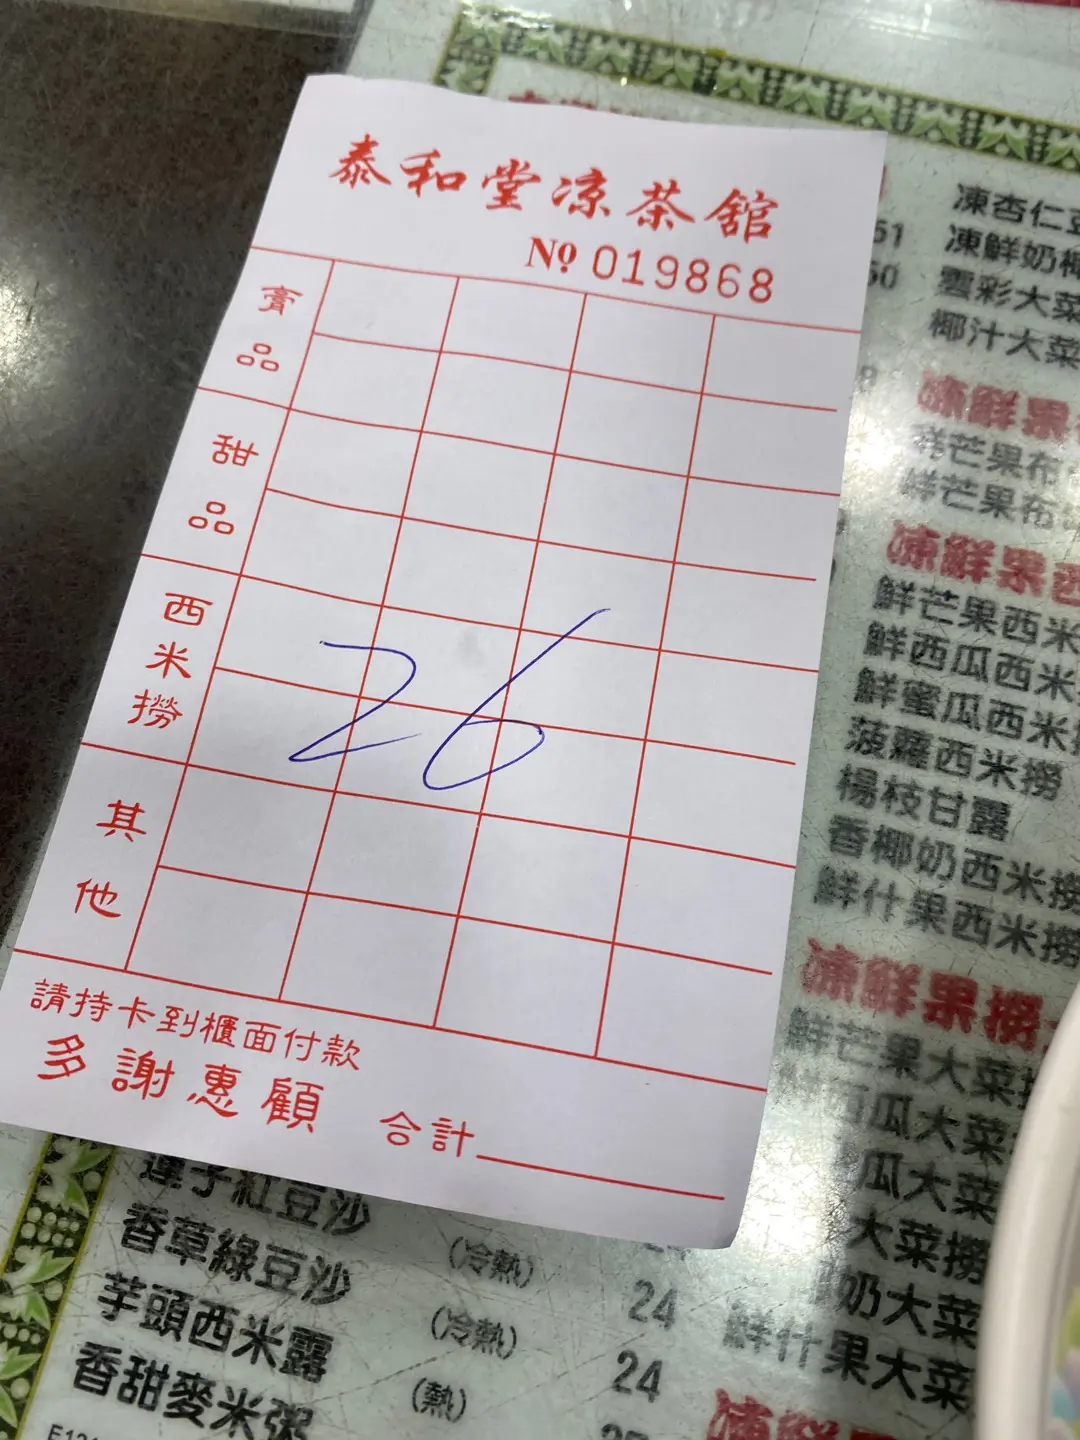 泰和堂凉茶舘
Nº 019868
膏品
甜品
西米撈
其他
26
請持卡到櫃面付款
多謝惠顧 合計
51
凍杏仁豆
凍鮮奶椰
雲彩大菜
椰汁大菜
凍鮮果
鮮芒果布
鮮芒果布
凍鮮果西
鮮芒果西米
鮮西瓜西米
鮮蜜瓜西米撈
菠蘿西米撈
楊枝甘露
香椰奶西米撈
鮮什果西米撈
凍鮮果撈
鮮芒果大菜撈
瓜大菜
瓜大菜
大菜撈
奶大菜
鮮什果大菜
蓮子紅豆沙 (冷熱) 24
香草綠豆沙 (冷熱) 24
芋頭西米露 (熱)
香甜麥米粥